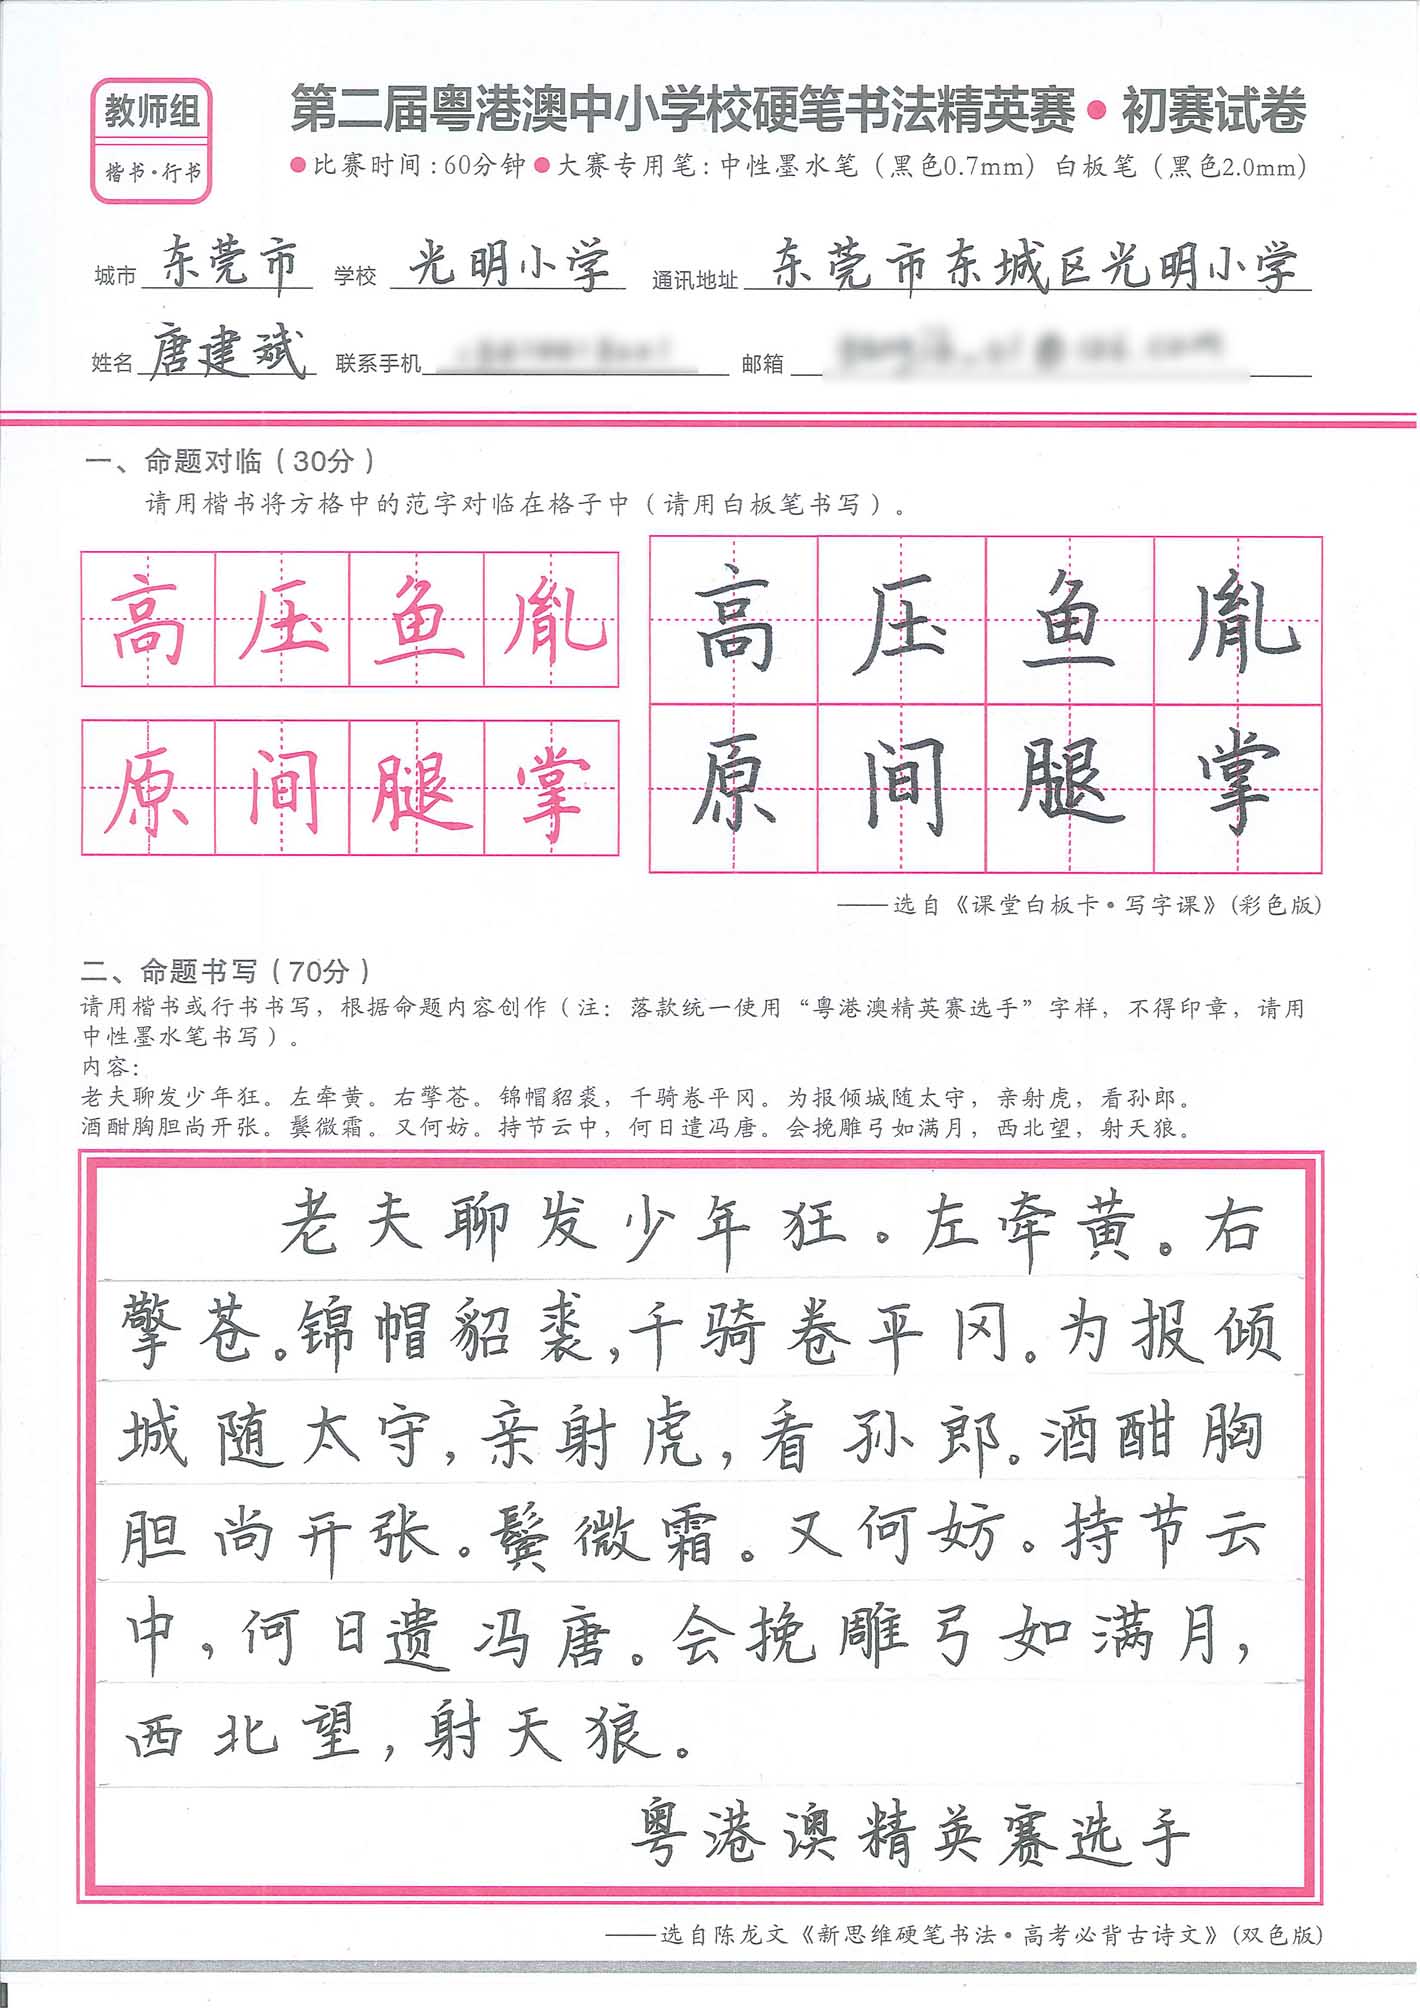 教师组
楷书·行书
第二届粤港澳中小学校硬笔书法精英赛·初赛试卷
●比赛时间:60分钟●大赛专用笔:中性墨水笔（黑色0.7mm）白板笔（黑色2.0mm）
城市 东莞市 学校 光明小学 通讯地址 东莞市东城区光明小学
姓名 唐建斌 联系手机 邮箱
一、命题对临（30分）
请用楷书将方格中的范字对临在格子中（请用白板笔书写）。
高压鱼胤 高压鱼胤
原间腿掌 原间腿掌
——选自《课堂白板卡·写字课》(彩色版)
二、命题书写（70分）
请用楷书或行书书写，根据命题内容创作（注：落款统一使用“粤港澳精英赛选手”字样，不得印章，请用
中性墨水笔书写）。
内容：
老夫聊发少年狂。左牵黄。右擎苍。锦帽貂裘，千骑卷平冈。为报倾城随太守，亲射虎，看孙郎。
酒酣胸胆尚开张。鬓微霜。又何妨。持节云中，何日遣冯唐。会挽雕弓如满月，西北望，射天狼。
老夫聊发少年狂。左牵黄。右
擎苍。锦帽貂裘，千骑卷平冈。为报倾
城随太守，亲射虎，看孙郎。酒酣胸
胆尚开张。鬓微霜。又何妨。持节云
中，何日遗冯唐。会挽雕弓如满月，
西北望，射天狼。
粤港澳精英赛选手
——选自陈龙文《新思维硬笔书法·高考必背古诗文》(双色版)